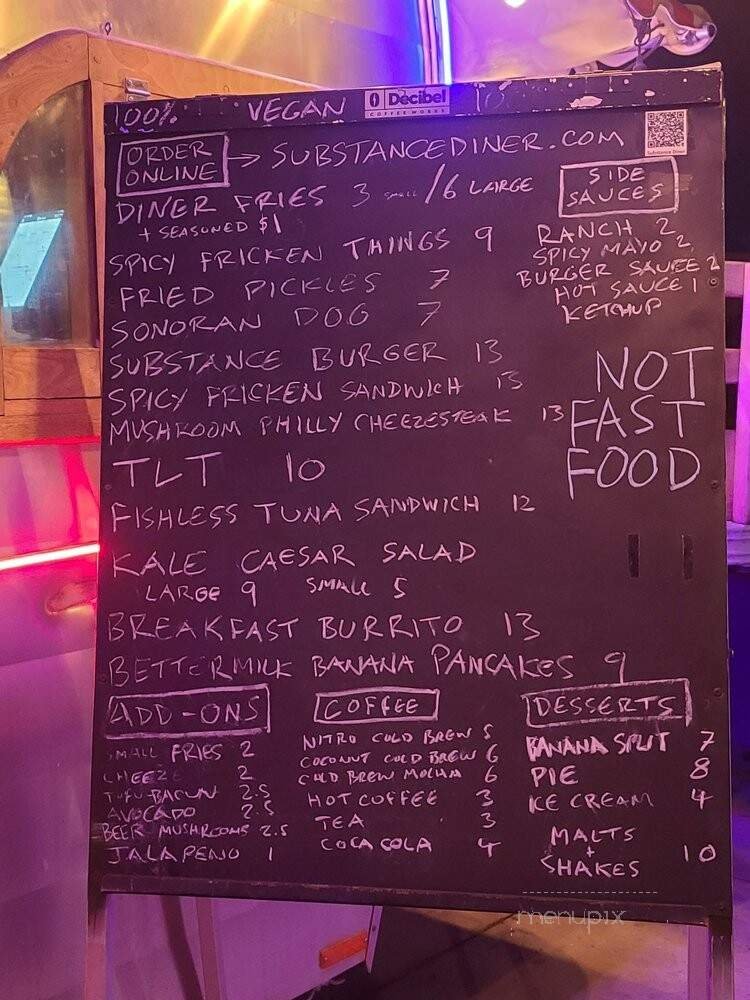 100% VEGAN 0 Decibel
COFFEE WORKS
ORDER ONLINE → SUBSTANCEDINER.COM
Substance Diner
DINER FRIES 3 SMALL / 6 LARGE
+ SEASONED $1
SPICY FRICKEN THINGS 9
FRIED PICKLES 7
SONORAN DOG 7
SUBSTANCE BURGER 13
SPICY FRICKEN SANDWICH 13
MUSHROOM PHILLY CHEEZESTEAK 13
TLT 10
FISHLESS TUNA SANDWICH 12
KALE CAESAR SALAD
LARGE 9 SMALL 5
BREAKFAST BURRITO 13
BETTERMILK BANANA PANCAKES 9
SIDE
SAUCES
RANCH 2
SPICY MAYO 2
BURGER SAUCE 2
HOT SAUCE 1
KETCHUP
NOT
FAST
FOOD
ADD-ONS
SMALL FRIES 2
CHEEZE 2
TOFU BACUN 2.5
AVOCADO 2.5
BEER MUSHROOMS 2.5
JALAPENO 1
COFFEE
NITRO COLD BREW 5
COCONUT COLD BREW 6
COLD BREW MOCHA 6
HOT COFFEE 3
TEA 3
COCA COLA 4
DESSERTS
BANANA SPLIT 7
PIE 8
ICE CREAM 4
MALTS
+ 10
SHAKES
menupix